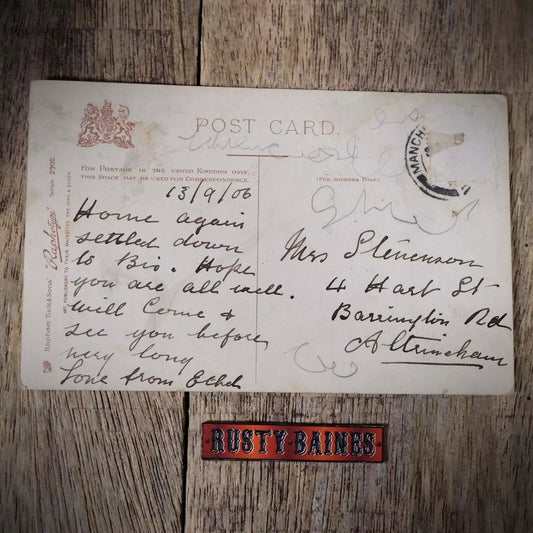 POST CARD.
FOR POSTAGE IN THE UNITED KINGDOM ONLY,
THIS SPACE MAY BE USED FOR CORRESPONDENCE.
(FOR ADDRESS ONLY.)
MANCH
13/9/06
Home again
settled down
to Bis. Hope
you are all well.
will Come &
see you before
very long
Love from Ethel
Mrs Stevenson
4 Hart St
Barrington Rd
Altrincham
RAPHAEL TUCK & SONS' "Raphotype" SERIES
ART PUBLISHERS TO THEIR MAJESTIES THE KING & QUEEN.
RUSTY BAINES